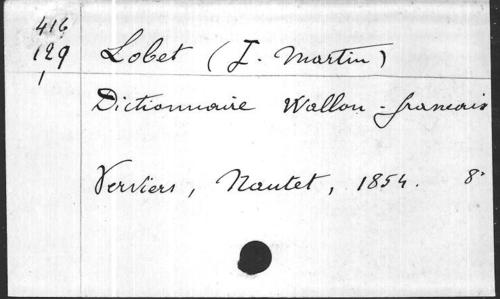 416
129 Lobet (J. Martin)
1
Dictionnaire Wallon-francais
Verviers, Nautet, 1854. 8°